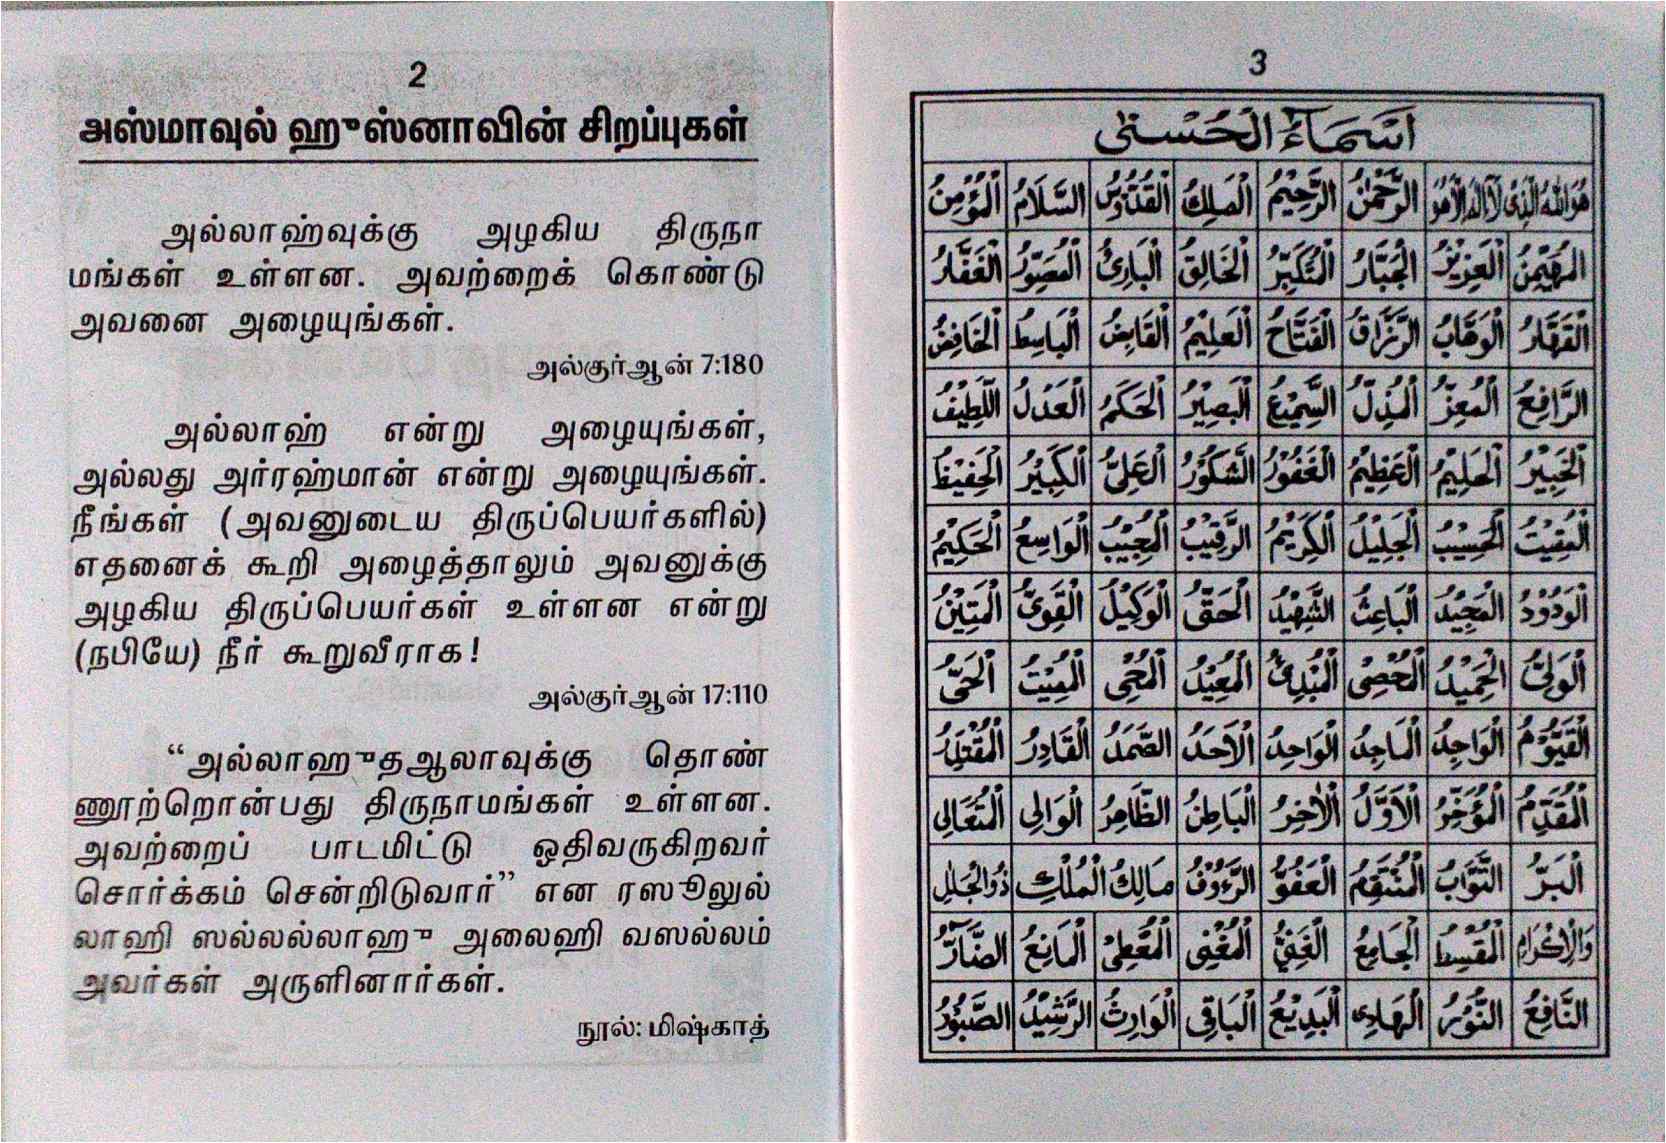 2
அஸ்மாவுல் ஹுஸ்னாவின் சிறப்புகள்
அல்லாஹ்வுக்கு அழகிய திருநா
மங்கள் உள்ளன. அவற்றைக் கொண்டு
அவனை அழையுங்கள்.
அல்குர்ஆன் 7:180
அல்லாஹ் என்று அழையுங்கள்,
அல்லது அர்ரஹ்மான் என்று அழையுங்கள்.
நீங்கள் (அவனுடைய திருப்பெயர்களில்)
எதனைக் கூறி அழைத்தாலும் அவனுக்கு
அழகிய திருப்பெயர்கள் உள்ளன என்று
(நபியே) நீர் கூறுவீராக!
அல்குர்ஆன் 17:110
“அல்லாஹுதஆலாவுக்கு தொண்
ணூற்றொன்பது திருநாமங்கள் உள்ளன.
அவற்றைப் பாடமிட்டு ஓதிவருகிறவர்
சொர்க்கம் சென்றிடுவார்” என ரஸூலுல்
லாஹி ஸல்லல்லாஹு அலைஹி வஸல்லம்
அவர்கள் அருளினார்கள்.
நூல்: மிஷ்காத்
3
اَسْمَاءُ الْحُسْنٰى
هُوَاللّٰهُ الَّذِىْ لَآ اِلٰهَ اِلَّا هُوَ الرَّحْمٰنُ الرَّحِيْمُ الْمَلِكُ الْقُدُّوْسُ السَّلَامُ الْمُؤْمِنُ
الْمُهَيْمِنُ الْعَزِيْزُ الْجَبَّارُ الْمُتَكَبِّرُ الْخَالِقُ الْبَارِئُ الْمُصَوِّرُ الْغَفَّارُ
الْقَهَّارُ الْوَهَّابُ الرَّزَّاقُ الْفَتَّاحُ الْعَلِيْمُ الْقَابِضُ الْبَاسِطُ الْخَافِضُ
الرَّافِعُ الْمُعِزُّ الْمُذِلُّ السَّمِيْعُ الْبَصِيْرُ الْحَكَمُ الْعَدْلُ اللَّطِيْفُ
الْخَبِيْرُ الْحَلِيْمُ الْعَظِيْمُ الْغَفُوْرُ الشَّكُوْرُ الْعَلِىُّ الْكَبِيْرُ الْحَفِيْظُ
الْمُقِيْتُ الْحَسِيْبُ الْجَلِيْلُ الْكَرِيْمُ الرَّقِيْبُ الْمُجِيْبُ الْوَاسِعُ الْحَكِيْمُ
الْوَدُوْدُ الْمَجِيْدُ الْبَاعِثُ الشَّهِيْدُ الْحَقُّ الْوَكِيْلُ الْقَوِىُّ الْمَتِيْنُ
الْوَلِىُّ الْحَمِيْدُ الْمُحْصِى الْمُبْدِئُ الْمُعِيْدُ الْمُحْىِ الْمُمِيْتُ الْحَىُّ
الْقَيُّوْمُ الْوَاجِدُ الْمَاجِدُ الْوَاحِدُ الْاَحَدُ الصَّمَدُ الْقَادِرُ الْمُقْتَدِرُ
الْمُقَدِّمُ الْمُؤَخِّرُ الْاَوَّلُ الْاٰخِرُ الْبَاطِنُ الظَّاهِرُ الْوَالِى الْمُتَعَالِى
الْبَرُّ التَّوَّابُ الْمُنْتَقِمُ الْعَفُوُّ الرَّءُوْفُ مَالِكُ الْمُلْكِ ذُوالْجَلٰلِ
وَالْاِكْرَامِ الْمُقْسِطُ الْجَامِعُ الْغَنِىُّ الْمُغْنِى الْمُعْطِىْ الْمَانِعُ الضَّآرُّ
النَّافِعُ النُّوْرُ الْهَادِى الْبَدِيْعُ الْبَاقِى الْوَارِثُ الرَّشِيْدُ الصَّبُوْرُ